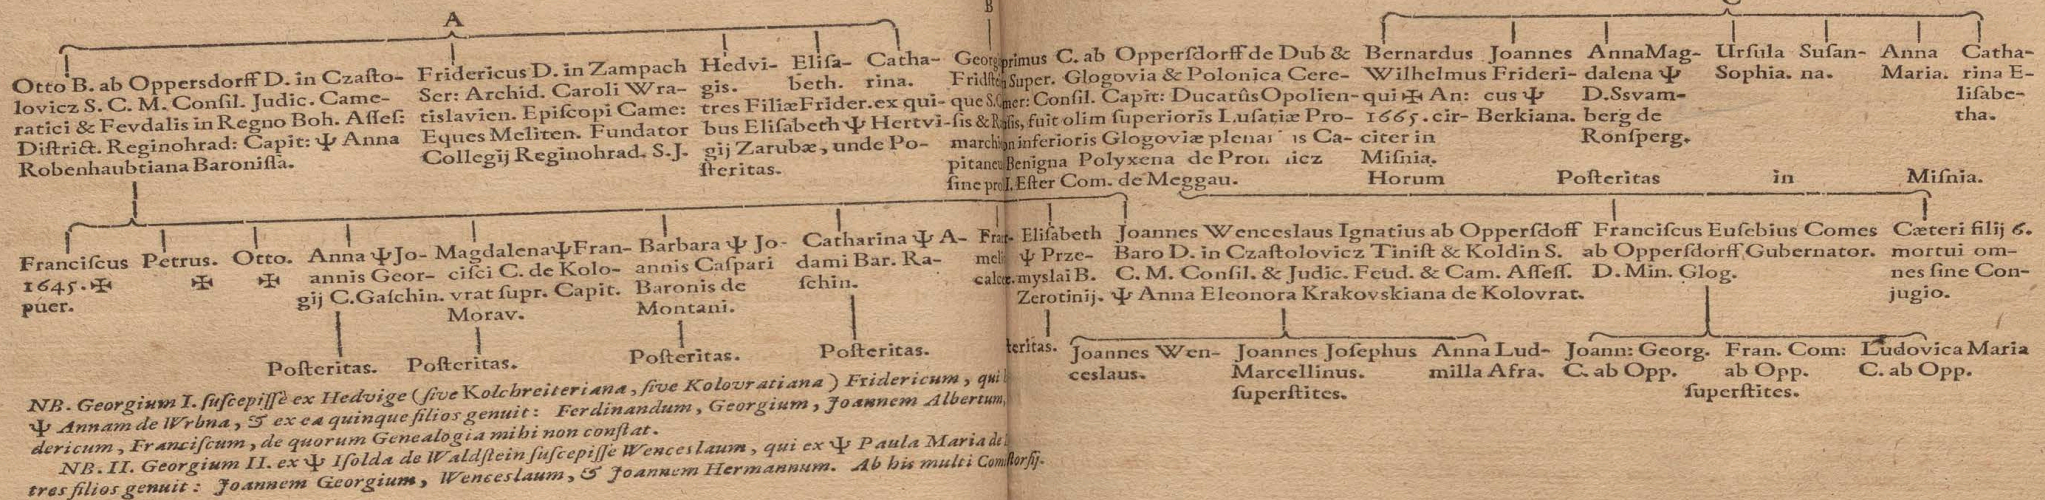 A
Otto B. ab Oppersdorff D. in Czaſto-
lovicz S. C. M. Conſil. Judic. Came-
ratici & Fevdalis in Regno Boh. Aſſeſ:
Diſtrict. Reginohrad: Capit: Ψ Anna
Robenhaubtiana Baroniſſa.
Fridericus D. in Zampach
Ser: Archid. Caroli Wra-
tislavien. Epiſcopi Came:
Eques Meliten. Fundator
Collegij Reginohrad. S.J.
Hedvi-
gis.
Eliſa-
beth.
Catha-
rina.
tres Filiæ Frider. ex qui-
bus Eliſabeth Ψ Hertvi-
gij Zarubæ, unde Po-
ſteritas.
B
Georg primus C. ab Oppersdorff de Dub &
Super. Glogovia & Polonica Cere-
que S. Conſil. Capit: Ducatûs Opolien-
ſis & fuit olim ſuperioris Luſatiæ Pro-
march inferioris Glogoviæ Ca-
Benigna Polyxena de
ſine pro Eſter Com. de Meggau.
Bernardus
Wilhelmus
qui ✠ An:
1665. cir-
citer in
Miſnia.
Joannes
Frideri-
cus Ψ
Berkiana.
Anna Mag-
dalena Ψ
D. Ssvam-
berg de
Ronſperg.
Urſula
Sophia.
Suſan-
na.
Anna
Maria.
Catha-
rina E-
liſabe-
tha.
Horum Poſteritas in Miſnia.
Franciſcus
1645. ✠
puer.
Petrus.
✠
Otto.
✠
Anna Ψ Jo-
annis Geor-
gij C. Gaſchin.
Magdalena Ψ Fran-
ciſci C. de Kolo-
vrat ſupr. Capit.
Morav.
Barbara Ψ Jo-
annis Caſpari
Baronis de
Montani.
Catharina Ψ A-
dami Bar. Ra-
ſchin.
Eliſabeth
Ψ Prze-
myslai B.
Zerotinij.
Joannes Wenceslaus Ignatius ab Opperſdoff
Baro D. in Czaſtolovicz Tiniſt & Koldin S.
C. M. Conſil. & Judic. Feud. & Cam. Aſſeſſ.
Ψ Anna Eleonora Krakovskiana de Kolovrat.
Franciſcus Euſebius Comes
ab Opperſdorff Gubernator.
D. Min. Glog.
Cæteri filij 6.
mortui om-
nes ſine Con-
jugio.
Poſteritas.
Poſteritas.
Poſteritas.
Poſteritas.
teritas.
Joannes Wen-
ceslaus.
Joannes Joſephus
Marcellinus.
ſuperſtites.
Anna Lud-
milla Afra.
Joann: Georg.
C. ab Opp.
Fran. Com:
ab Opp.
ſuperſtites.
Ludovica Maria
C. ab Opp.
NB. Georgium I. ſuſcepiſſè ex Hedvige (ſive Kolchreiteriana, ſive Kolovratiana) Fridericum, qui
Ψ Annam de Wrbna, & ex ea quinque filios genuit: Ferdinandum, Georgium, Joannem Albertum,
dericum, Franciſcum, de quorum Genealogia mihi non conſtat.
NB. II. Georgium II. ex Ψ Iſolda de Waldſtein ſuſcepiſſe Wenceslaum, qui ex Ψ Paula Maria de
tres filios genuit: Joannem Georgium, Wenceslaum, & Joannem Hermannum. Ab his multi Com